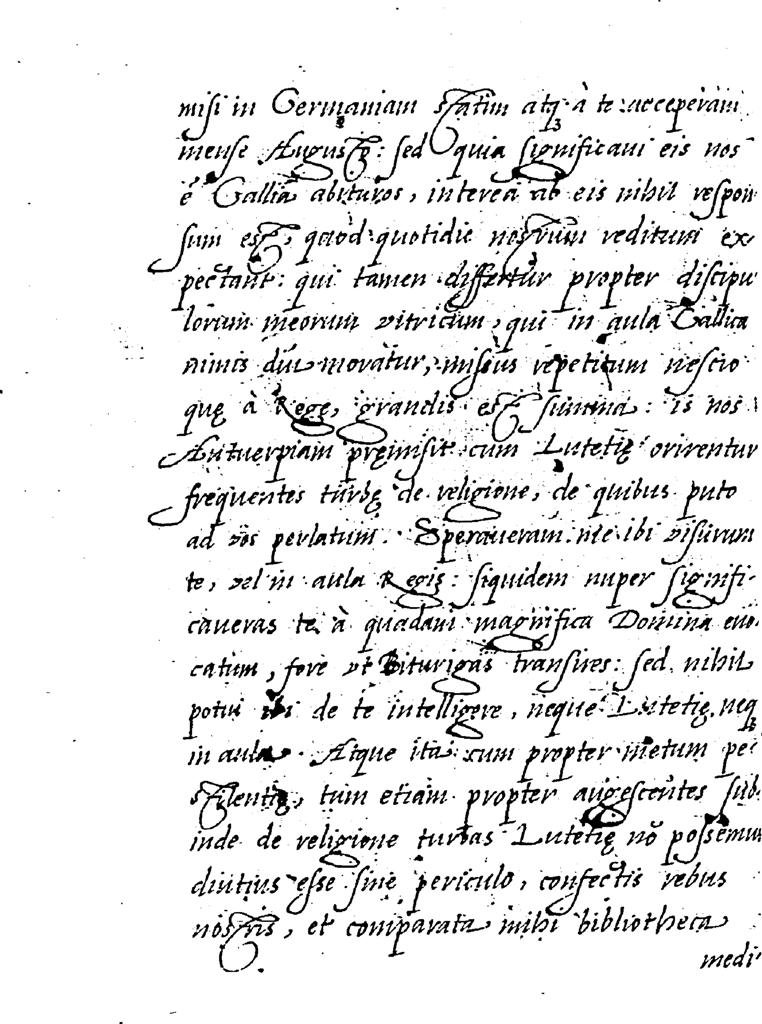 misi in Germaniam statim atq; à te acceperam
mense August: sed quia significavi eis nos
é Gallia abituros, interea ab eis nihil respon
sum est, quòd quotidie nostrum reditum ex-
pectant: qui tamen differtur propter discipu
lorum meorum vitricum, qui in aula Gallica
nimis diu moratur, missus repetitum nescio
quę à Regę, grandis est summa: is nos
Antuerpiam pręmisit cum Lutetię orirentur
frequentes turbę de religione, de quibus puto
ad vos perlatum. Speraueram me ibi visurum
te, vel in aula Regis: siquidem nuper signifi-
caveras te à quadam magnifica Domina evo-
catum, fore vt Biturigas transires: sed nihil
potui ibi de te intelligere, neque Lutetię, neq;
in aula. Atque ita cum propter metum pe-
stilentię, tum etiam propter augescentes sub
inde de religione turbas Lutetię nõ possemus
diutius esse sine periculo, confectis rebus
nostris, et comparata mihi bibliotheca
medi